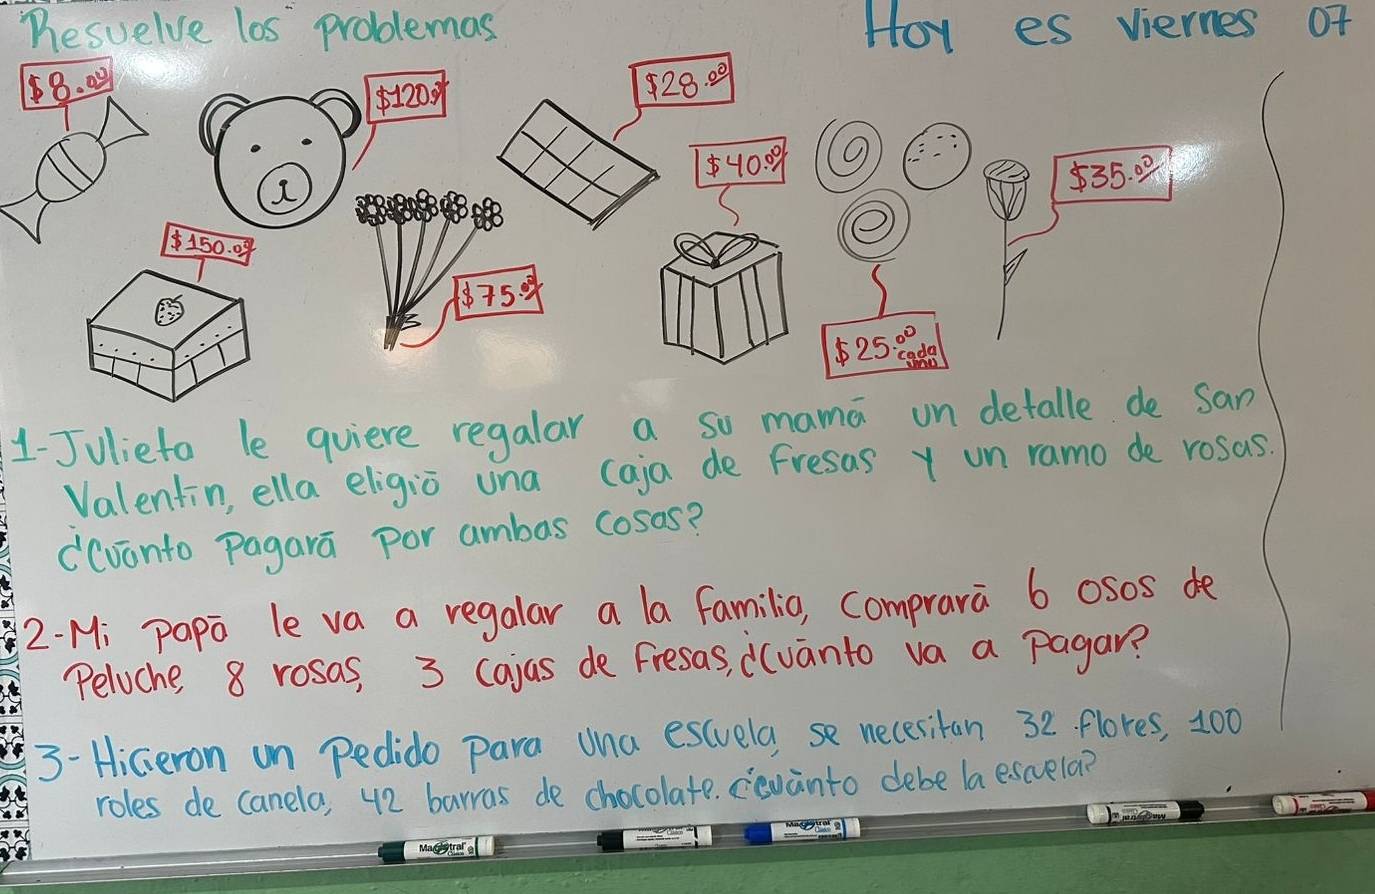 Resuelve los problemas
Hoy es viernes 07
$8.00
$120.00
$28.00
$40.00
$35.00
$150.00
$75.00
$25.00 cada uno
1-Julieta le quiere regalar a su mamá un detalle de San
Valentín, ella eligió una caja de Fresas y un ramo de rosas.
¿Cuánto Pagará Por ambas cosas?
2-Mi Papá le va a regalar a la Familia, Comprará 6 osos de
Peluche, 8 rosas, 3 Cajas de Fresas, ¿Cuánto va a Pagar?
3-Hicieron un Pedido Para una escuela, se necesitan 32 flores, 100
roles de Canela, 42 barras de chocolate. ¿Cuánto debe la escuela?
Magistral
Magistral